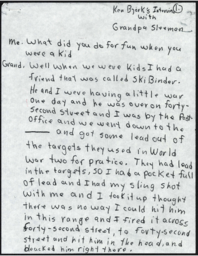 Ken Bjork's Interview
with
Grandpa Sleemon
Me. What did you do for fun when you
were a kid
Grand. Well when we were kids I had a
friend that was called Ski Binder.
He and I were having a little war
one day and he was over on forty-
second street and I was by the Post
Office and we went down to the
and got some lead out of
the targets they used in World
War two for pratice. They had lead
in the targets, so I had a pocket full
of lead and I had my sling shot
with me and I took it up thought
there was no way I could hit him
in this range and I fired it across
forty-second street, to forty second
street and hit him in the head and
him right there.